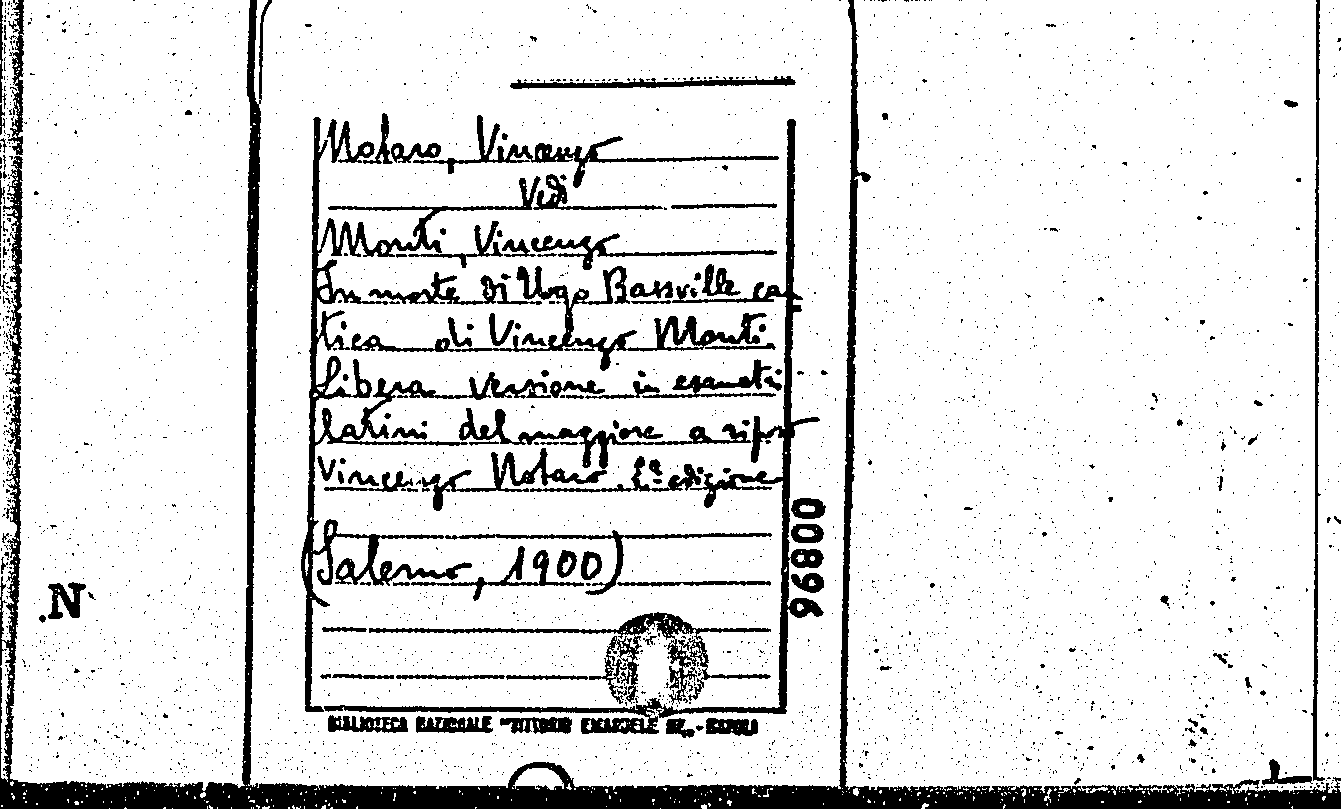 Notaro, Vincenzo
Vedi
Monti, Vincenzo
In morte di Ugo Bassville can
tica di Vincenzo Monti
Libera versione in esametri
latini del maggiore a riposo
Vincenzo Notaro. edizione
(Salerno, 1900)
00896
.N
BIBLIOTECA NAZIONALE "VITTORIO EMANUELE III„ - NAPOLI